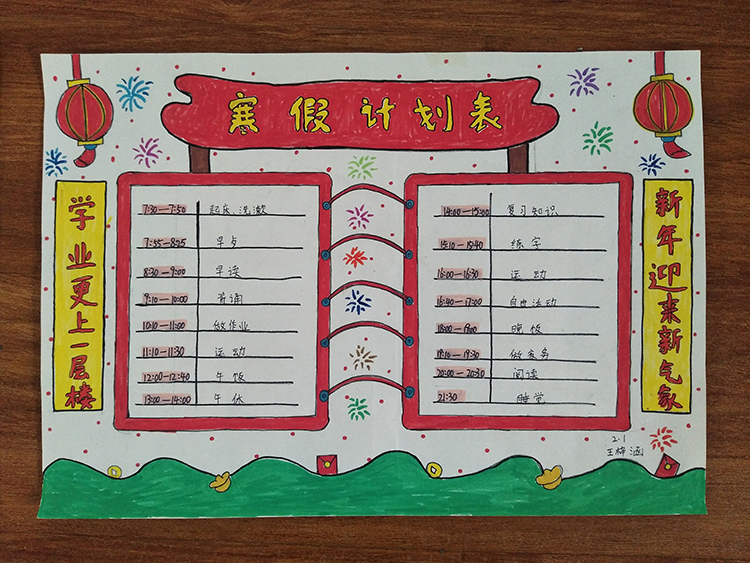 寒假计划表
学业更上一层楼
7:30—7:50 起床、洗漱
7:55—8:25 早夕
8:30—9:00 早读
9:10—10:00 背诵
10:10—11:00 做作业
11:10—11:30 运动
12:00—12:40 午饭
13:00—14:00 午休
14:00—15:00 复习知识
15:10—15:40 练字
16:00—16:30 运动
16:40—17:00 自由活动
18:00—19:00 晚饭
19:10—19:30 做家务
20:00—20:30 阅读
21:30 睡觉
新年迎来新气象
2.1
王梓涵